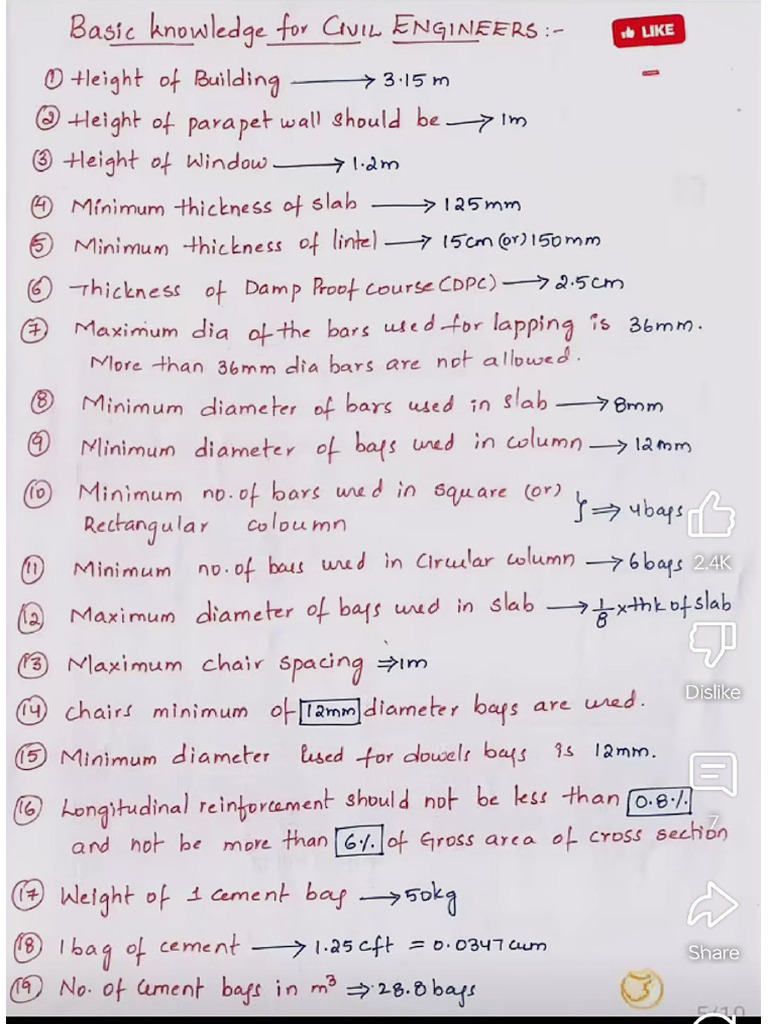 Basic knowledge for CIVIL ENGINEERS :-
LIKE
① Height of Building → 3.15 m
② Height of parapet wall should be → 1m
③ Height of Window → 1.2m
④ Minimum thickness of slab → 125mm
⑤ Minimum thickness of lintel → 15cm (or) 150mm
⑥ Thickness of Damp Proof course (DPC) → 2.5cm
⑦ Maximum dia of the bars used for lapping is 36mm.
More than 36mm dia bars are not allowed.
⑧ Minimum diameter of bars used in slab → 8mm
⑨ Minimum diameter of bars used in column → 12mm
⑩ Minimum no. of bars used in square (or)
Rectangular coloumn } ⇒ 4 bars
⑪ Minimum no. of bars used in Circular column → 6 bars
2.4K
⑫ Maximum diameter of bars used in slab → 1/8 x thk of slab
⑬ Maximum chair spacing ⇒ 1m
Dislike
⑭ chairs minimum of 12mm diameter bars are used.
⑮ Minimum diameter used for dowels bars is 12mm.
⑯ Longitudinal reinforcement should not be less than 0.8%
7
and not be more than 6% of Gross area of cross section
⑰ Weight of 1 cement bag → 50kg
⑱ 1 bag of cement → 1.25 cft = 0.0347 cum
Share
⑲ No. of cement bags in m³ ⇒ 28.8 bags
3
5/10